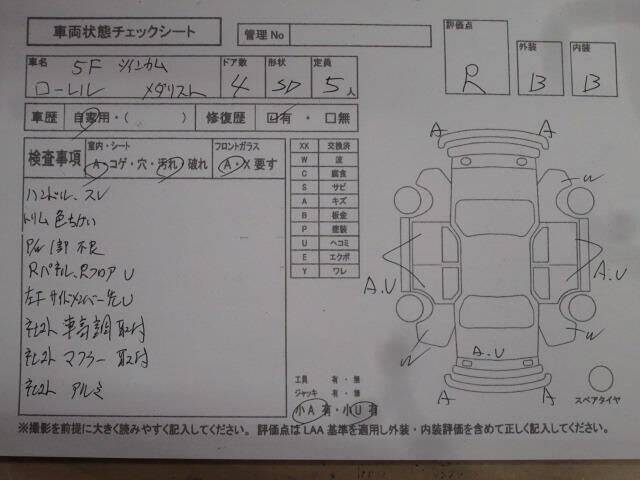 車両状態チェックシート
管理No
評価点 R
外装 B
内装 B
車名 5F ツインカム
ローレル メダリスト
ドア数 4
形状 SD
定員 5人
車歴 自家用・( )
修復歴 □有・□無
検査事項
室内・シート
A・コゲ・穴・汚れ・破れ
フロントガラス
A・X 要す
ハンドル、スレ
トリム 色ちがい
P/W 1部 不良
Rパネル、Rフロア U
左F サイドメンバー先U
社外 車高調 取付
社外 マフラー 取付
社外 アルミ
XX 交換済
W 波
C 腐食
S サビ
A キズ
B 板金
P 塗装
U ヘコミ
E エクボ
Y ワレ
工具 有・無
ジャッキ 有・無
小A 有・小U 有
A
A
W
A.U
A.U
W
W
A.U
A
A
スペアタイヤ
※撮影を前提に大きく読みやすく記入してください。 評価点はLAA基準を適用し外装・内装評価を含めて正しく記入してください。